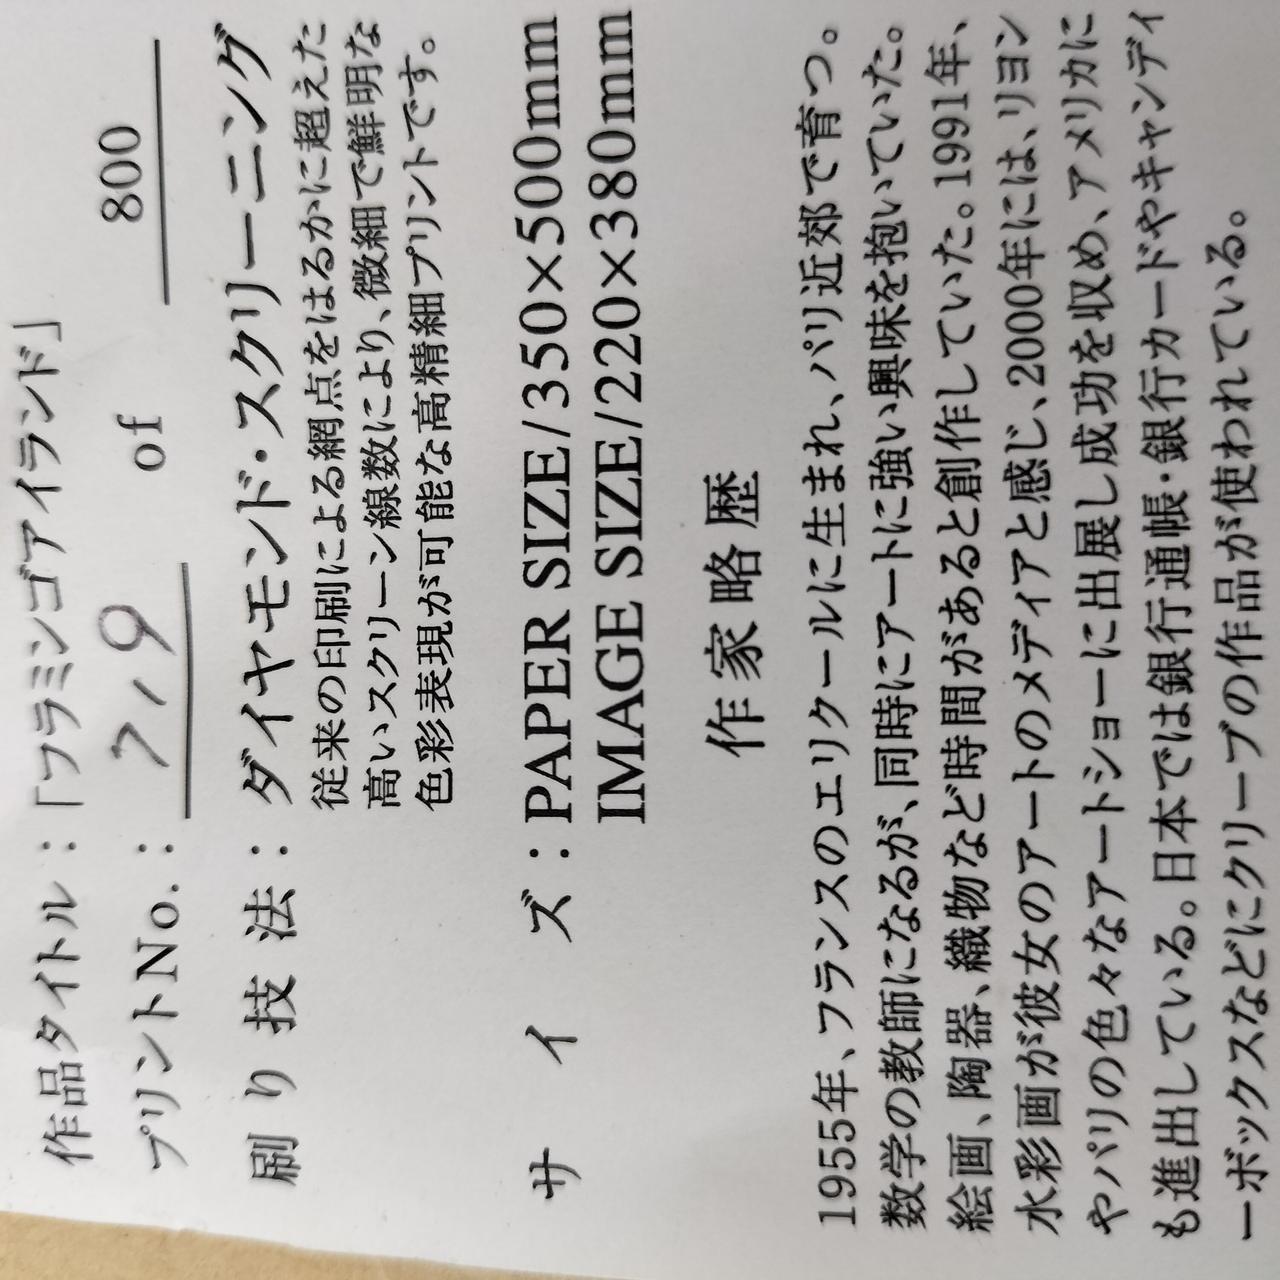 作品タイトル：「フラミンゴアイランド」
プリントNo.：719 of 800
刷り技法：ダイヤモンド・スクリーニング
従来の印刷による網点をはるかに超えた
高いスクリーン線数により、微細で鮮明な
色彩表現が可能な高精細プリントです。
サイズ：PAPER SIZE/350×500mm
IMAGE SIZE/220×380mm
作家略歴
1955年、フランスのエリクールに生まれ、パリ近郊で育つ。
数学の教師になるが、同時にアートに強い興味を抱いていた。
絵画、陶器、織物など時間があると創作していた。1991年、
水彩画が彼女のアートのメディアと感じ、2000年には、リヨン
やパリの色々なアートショーに出展し成功を収め、アメリカに
も進出している。日本では銀行通帳・銀行カードやキャンディ
ーボックスなどにクリーブの作品が使われている。